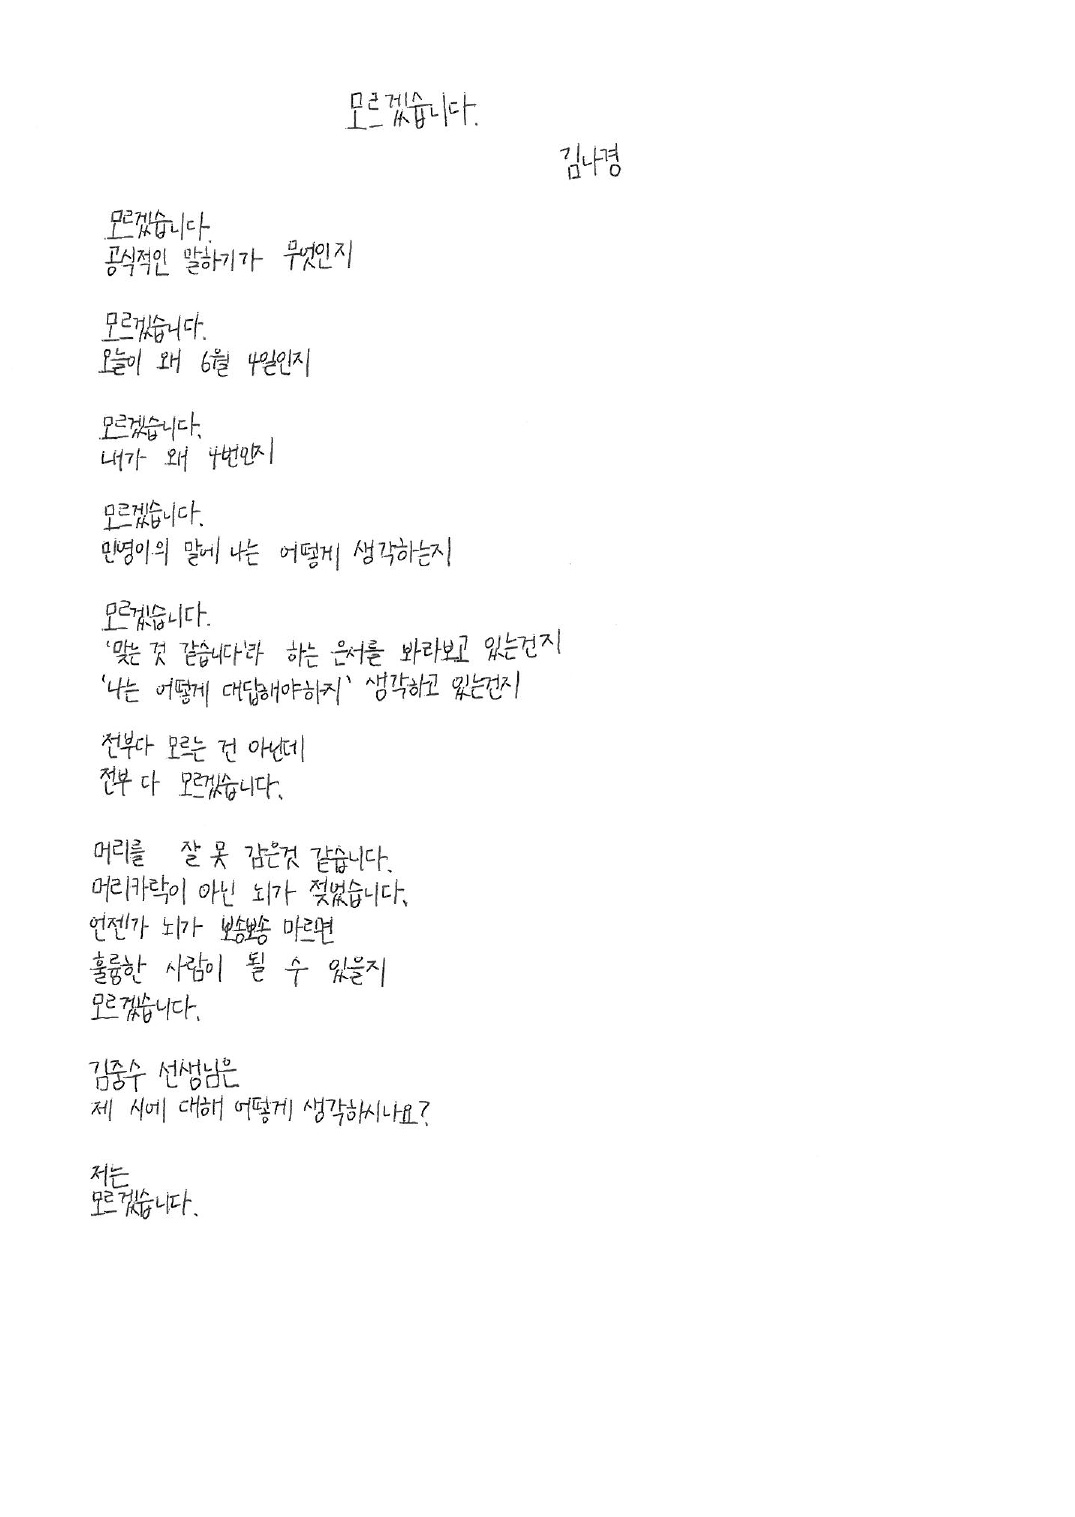 모르겠습니다.
김나경
모르겠습니다.
공식적인 말하기가 무엇인지
모르겠습니다.
오늘이 왜 6월 4일인지
모르겠습니다.
내가 왜 4번인지
모르겠습니다.
민영이의 말에 나는 어떻게 생각하는지
모르겠습니다.
'맞는 것 같습니다'라 하는 은서를 봐라보고 있는건지
'나는 어떻게 대답해야하지' 생각하고 있는건지
전부다 모르는 건 아닌데
전부 다 모르겠습니다.
머리를 잘 못 감은것 같습니다.
머리카락이 아닌 뇌가 젖었습니다.
언젠가 뇌가 뽀송뽀송 마르면
훌륭한 사람이 될 수 있을지
모르겠습니다.
김중수 선생님은
제 시에 대해 어떻게 생각하시나요?
저는
모르겠습니다.